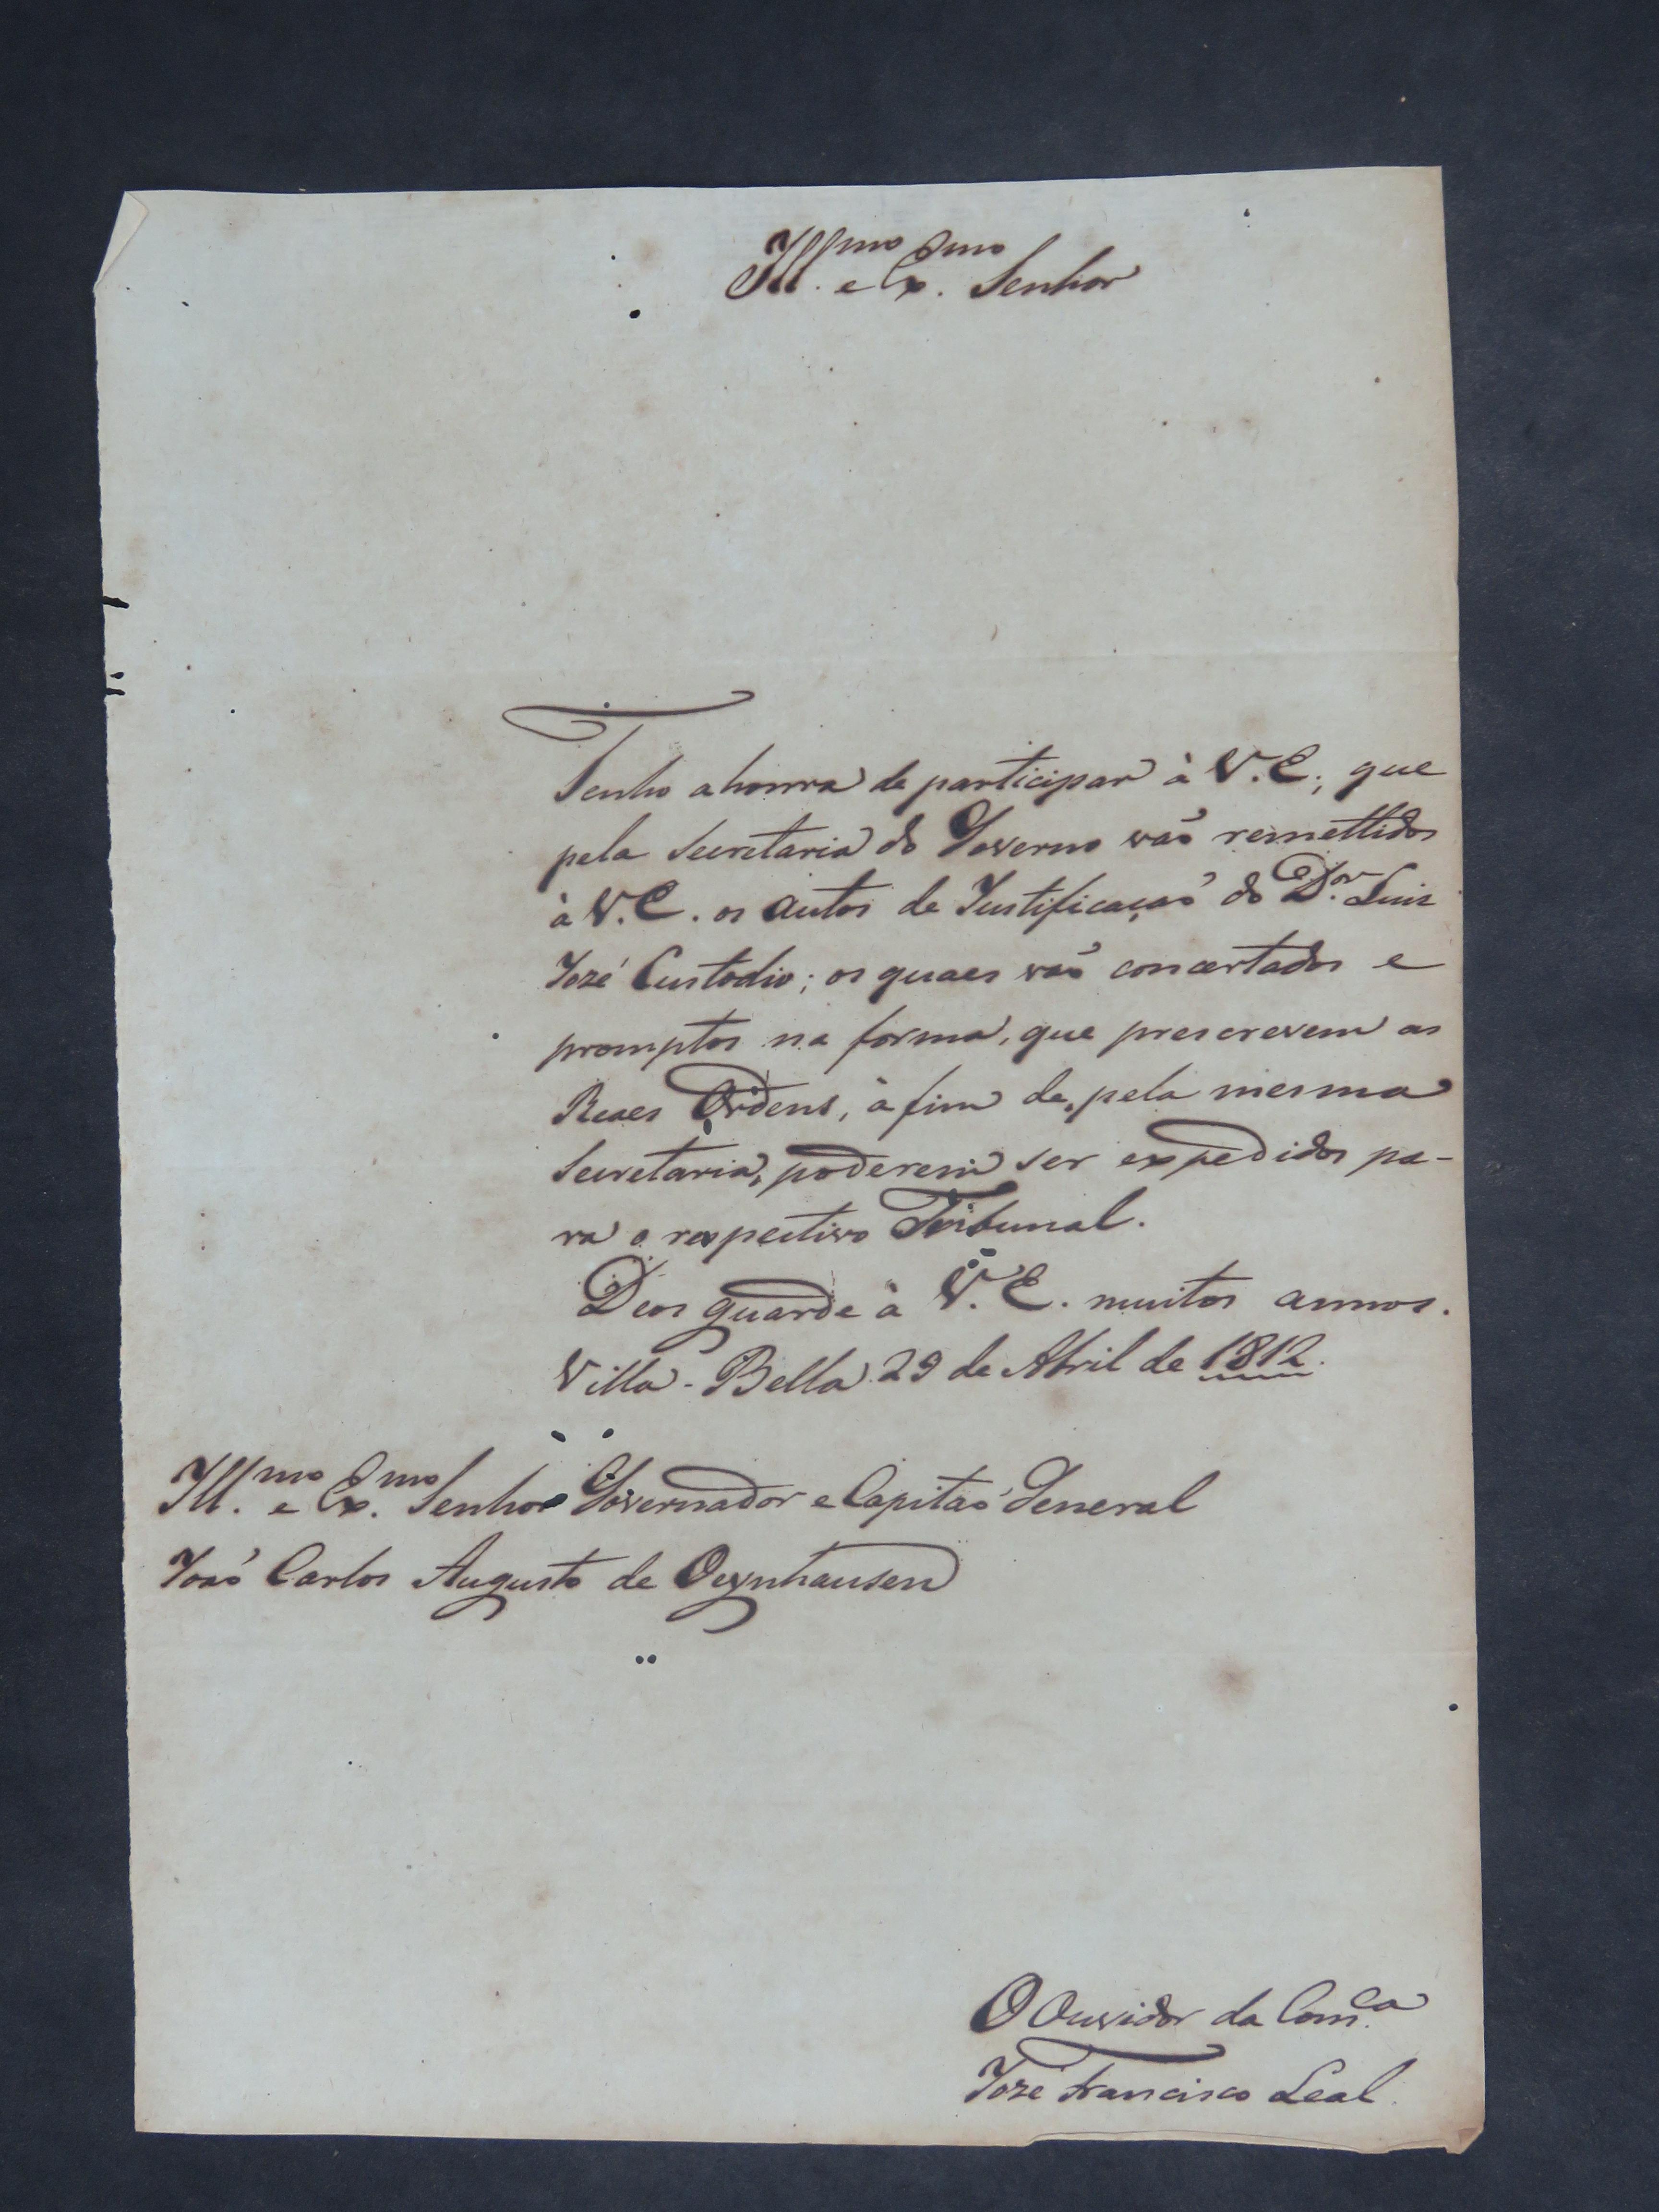 Ill.mo e Ex.mo Senhor
Tenho a honra de participar à V. E., que
pela Secretaria do Governo vaõ remettidos
à V. E. os autos de Justificaçaõ do D.or Luis
Jozé Custodio; os quaes vaõ concertados e
promptos na forma, que prescrevem as
Reaes Ordens, à fim de, pela mesma
Secretaria, poderem ser expedidos pa-
ra o respectivo Tribunal.
Deos guarde à V. E. muitos annos.
Villa-Bella 29 de Abril de 1812.
Ill.mo e Ex.mo Senhor Governador e Capitaõ General
Joaõ Carlos Augusto de Oeynhausen
O Ouvidor da Com.ca
Jozé Francisco Leal